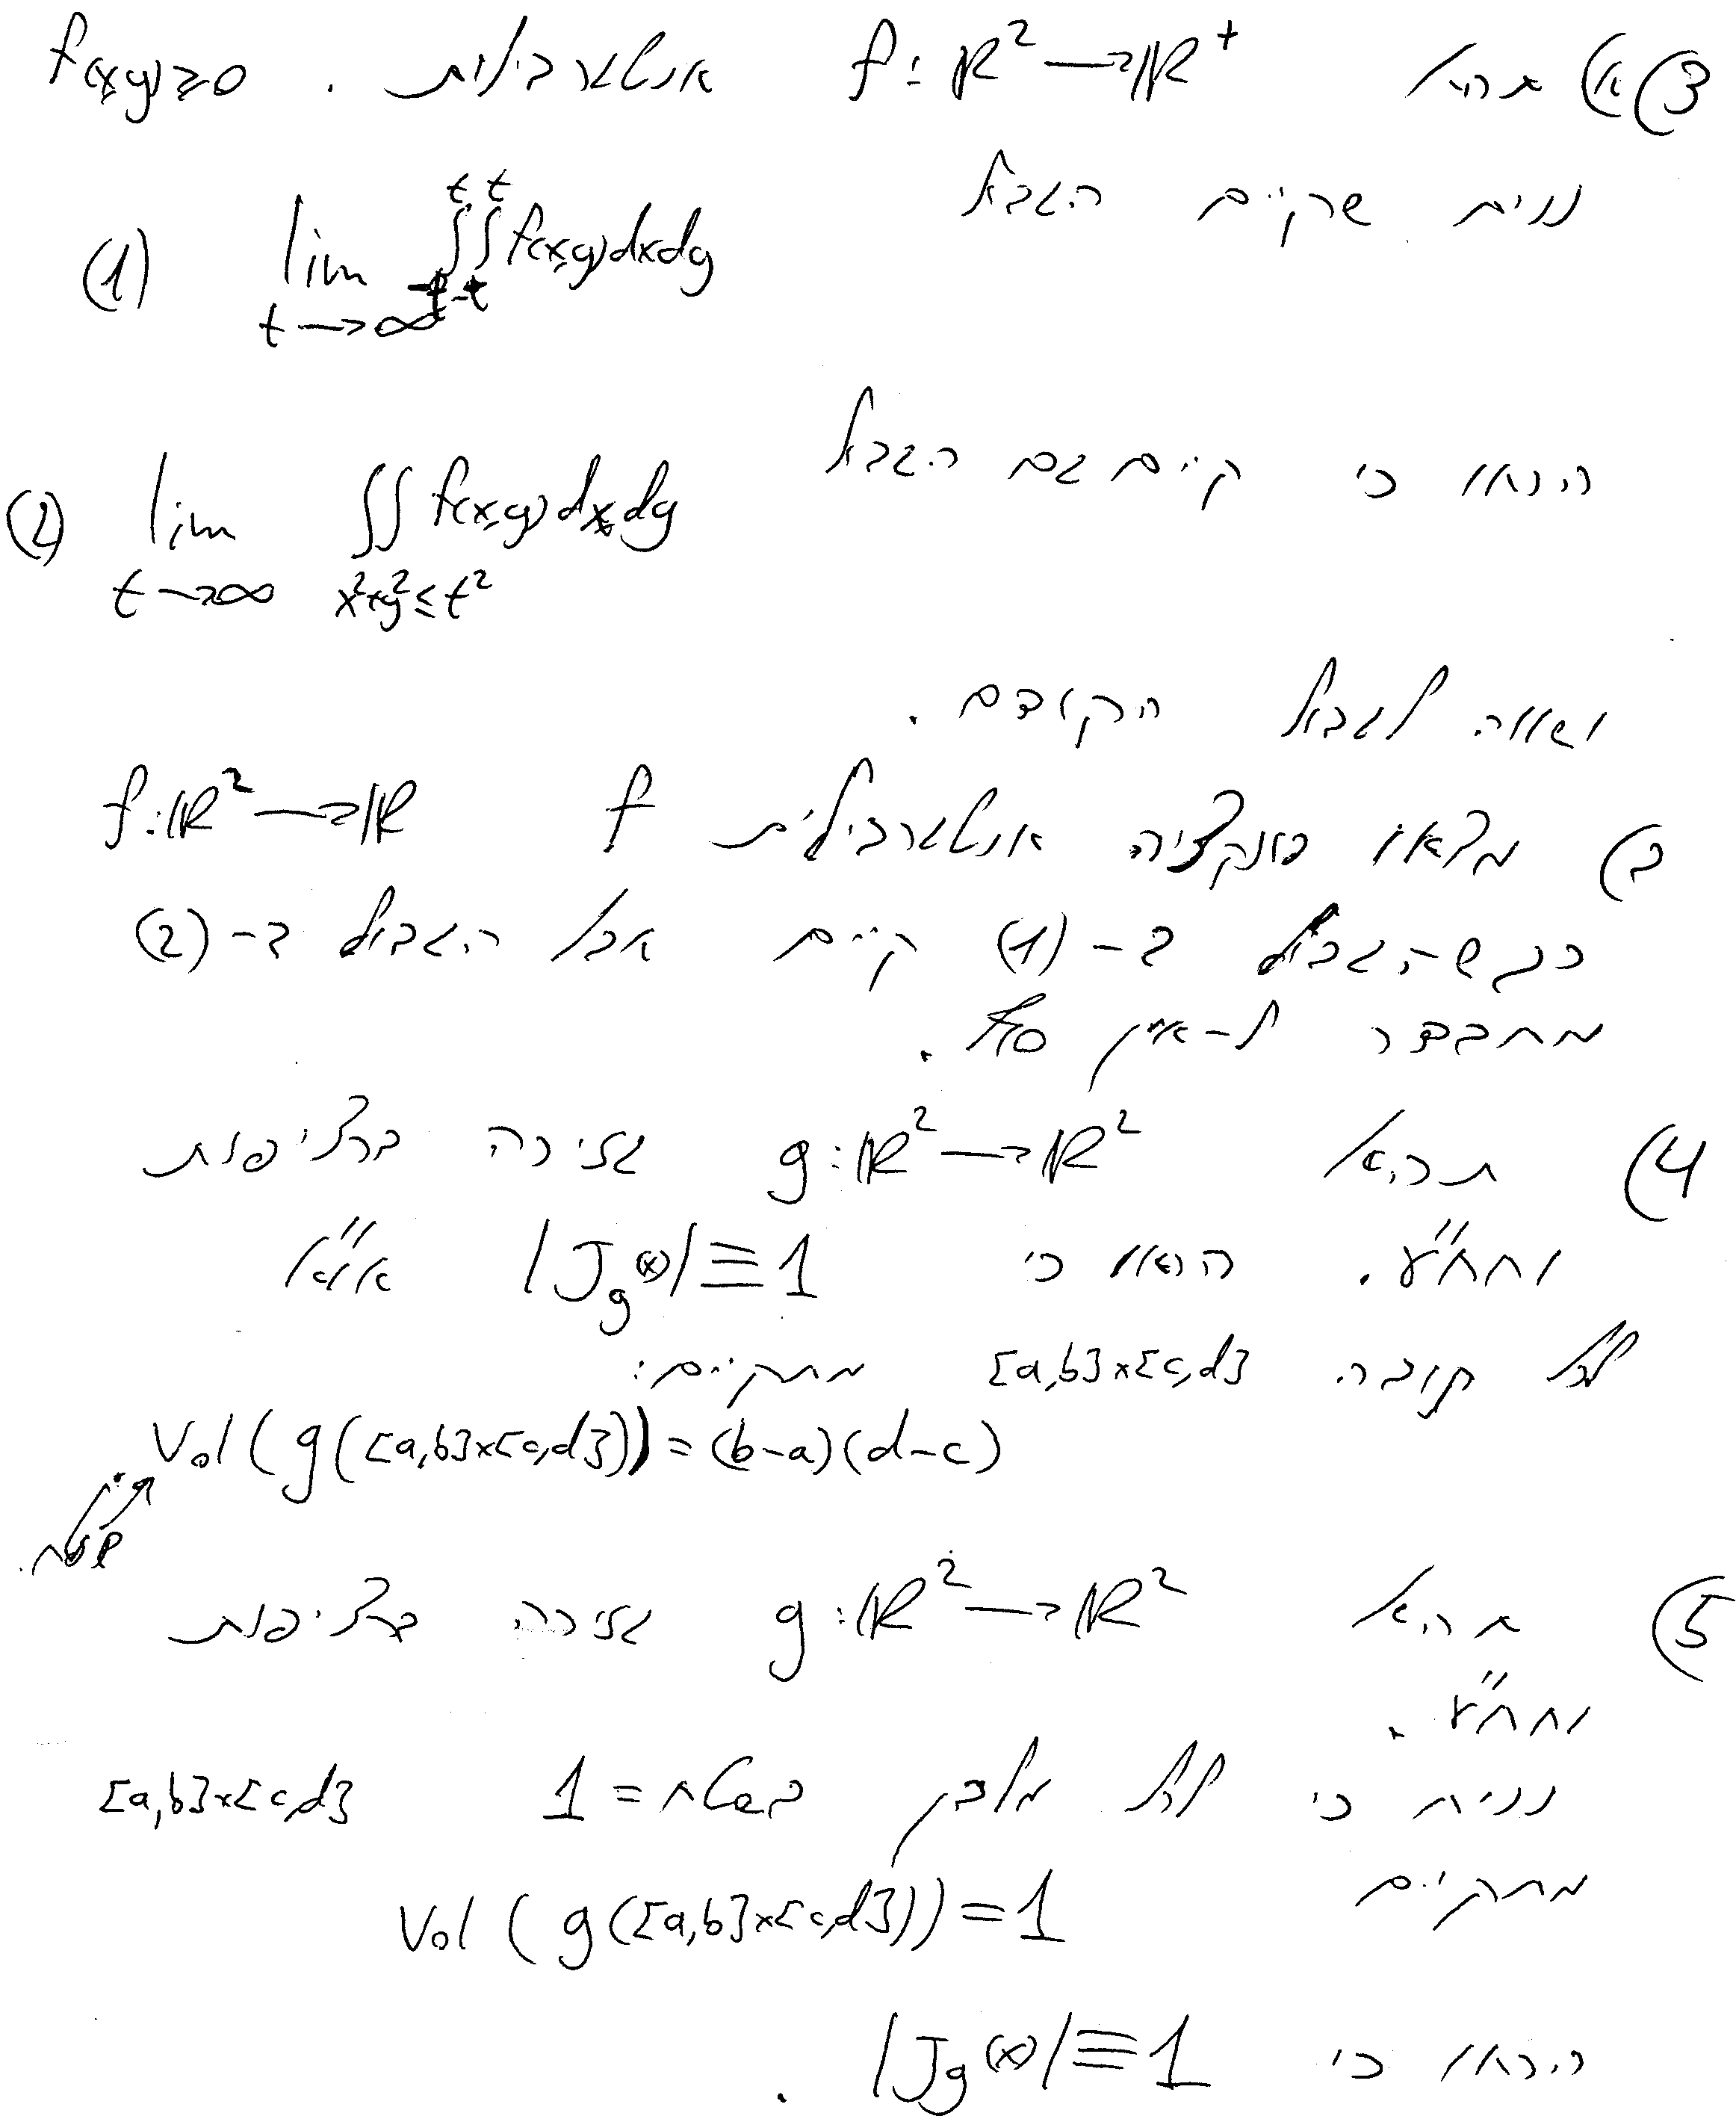 3) א) תהא f: ℝ² → ℝ⁺ אינטגרבילית. f(x,y) ≥ 0
נניח שקיים הגבול
(1) lim_{t→∞} ∫_{-t}^{t} ∫_{-t}^{t} f(x,y) dx dy
הראו כי קיים גם הגבול
(2) lim_{t→∞} ∬_{x²+y²≤t²} f(x,y) dx dy
ושווה לגבול הקודם.
ב) מצאו פונקציה אינטגרבילית f f: ℝ² → ℝ
כך ש-הגבול ב-(1) קיים אבל הגבול ב-(2)
מתבדר ל-אין סוף.
4) תהא g: ℝ² → ℝ² גזירה ברציפות
וחח"ע. הראו כי |J_g(x)| ≡ 1 אמ"מ
לכל קוביה [a,b]×[c,d] מתקיים:
Vol(g([a,b]×[c,d])) = (b-a)(d-c)
שטח.
5) תהא g: ℝ² → ℝ² גזירה ברציפות
וחח"ע.
נניח כי לכל מלבן בשטח = 1 [a,b]×[c,d]
מתקיים
Vol(g([a,b]×[c,d])) = 1
הראו כי |J_g(x)| ≡ 1.